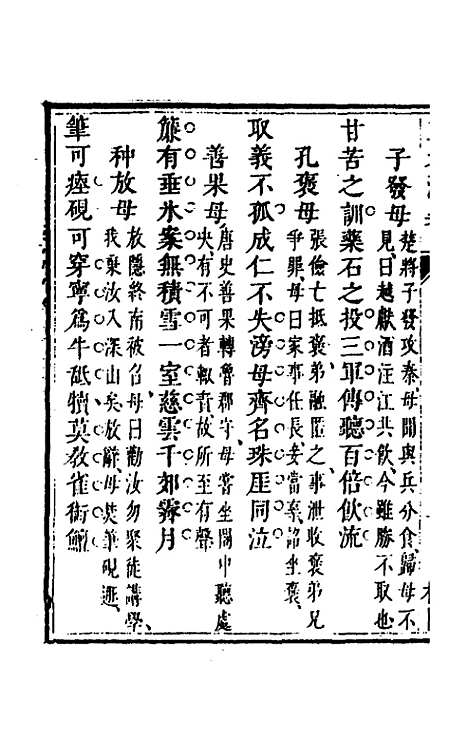 子發母 楚將子發攻秦母聞與兵分食歸母不
見曰越獻酒注江共飲今雖勝不取也
甘苦之訓藥石之投三軍傳聽百倍飲流
孔褒母 張儉亡抵褒弟融匿之事泄收褒弟兄
爭罪母曰家事任長妾當辜詔坐褒
取義不孤成仁不失滂母齊名珠厓同泣
善果母 唐史善果轉魯郡守母嘗坐閤中聽處
決有不可者輒責故所至有聲
簾有垂氷案無積雪一室慈雲千郊霽月
种放母 放隱終南被召母曰勸汝勿聚徒講學
我棄汝入深山矣放辭母焚筆硯遯
筆可瘞硯可穿寧為牛舐犢莫教雀銜鱣